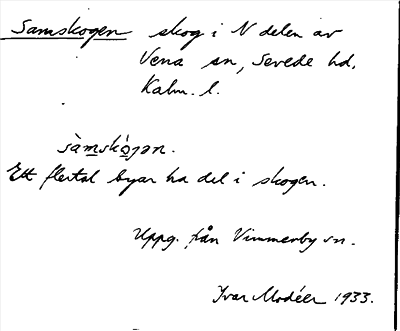 Samskogen skog i N delen av
Vena sn, Sevede hd.
Kalm. l.
sàmskò̱gən.
Ett flertal byar ha del i skogen.
Uppg. från Vimmerby sn.
Ivar Modéer 1933.